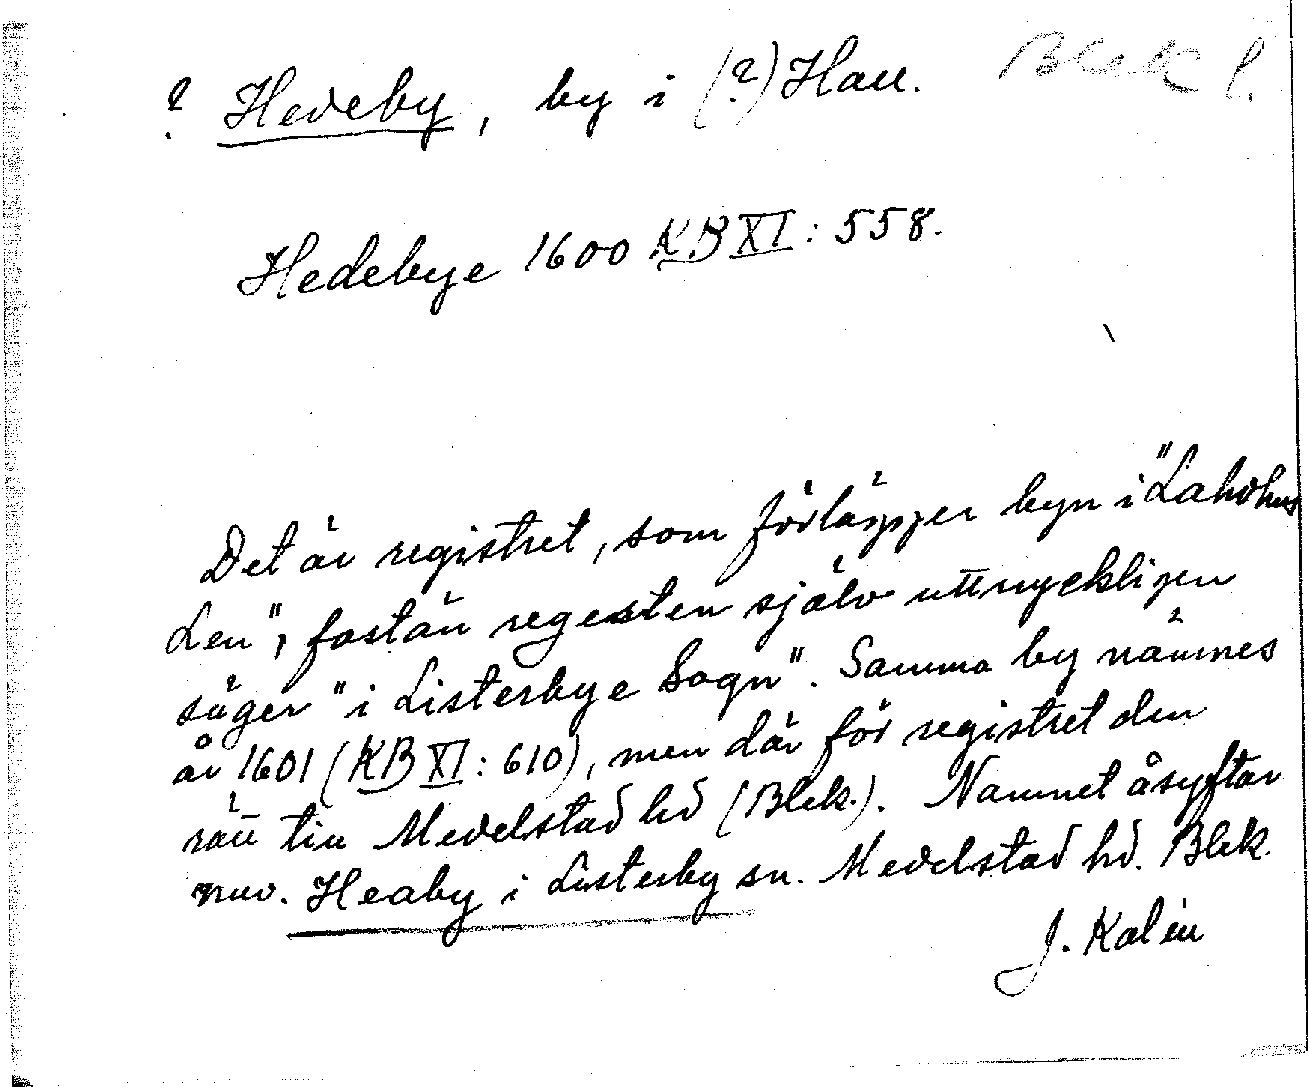 ? Hedeby, by i (?) Hall. Blek l.
Hedebye 1600 KB XI: 558.
Det är registret, som förlägger byn i "Laholms
Len", fastän regesten själv uttryckligen
säger "i Listerbye Sogn". Samma by nämnes
år 1601 (KB XI: 610), men där för registret den
rätt till Medelstad hd (Blek.). Namnet åsyftar
nuv. Heaby i Listerby sn. Medelstad hd. Blek.
J. Kalén